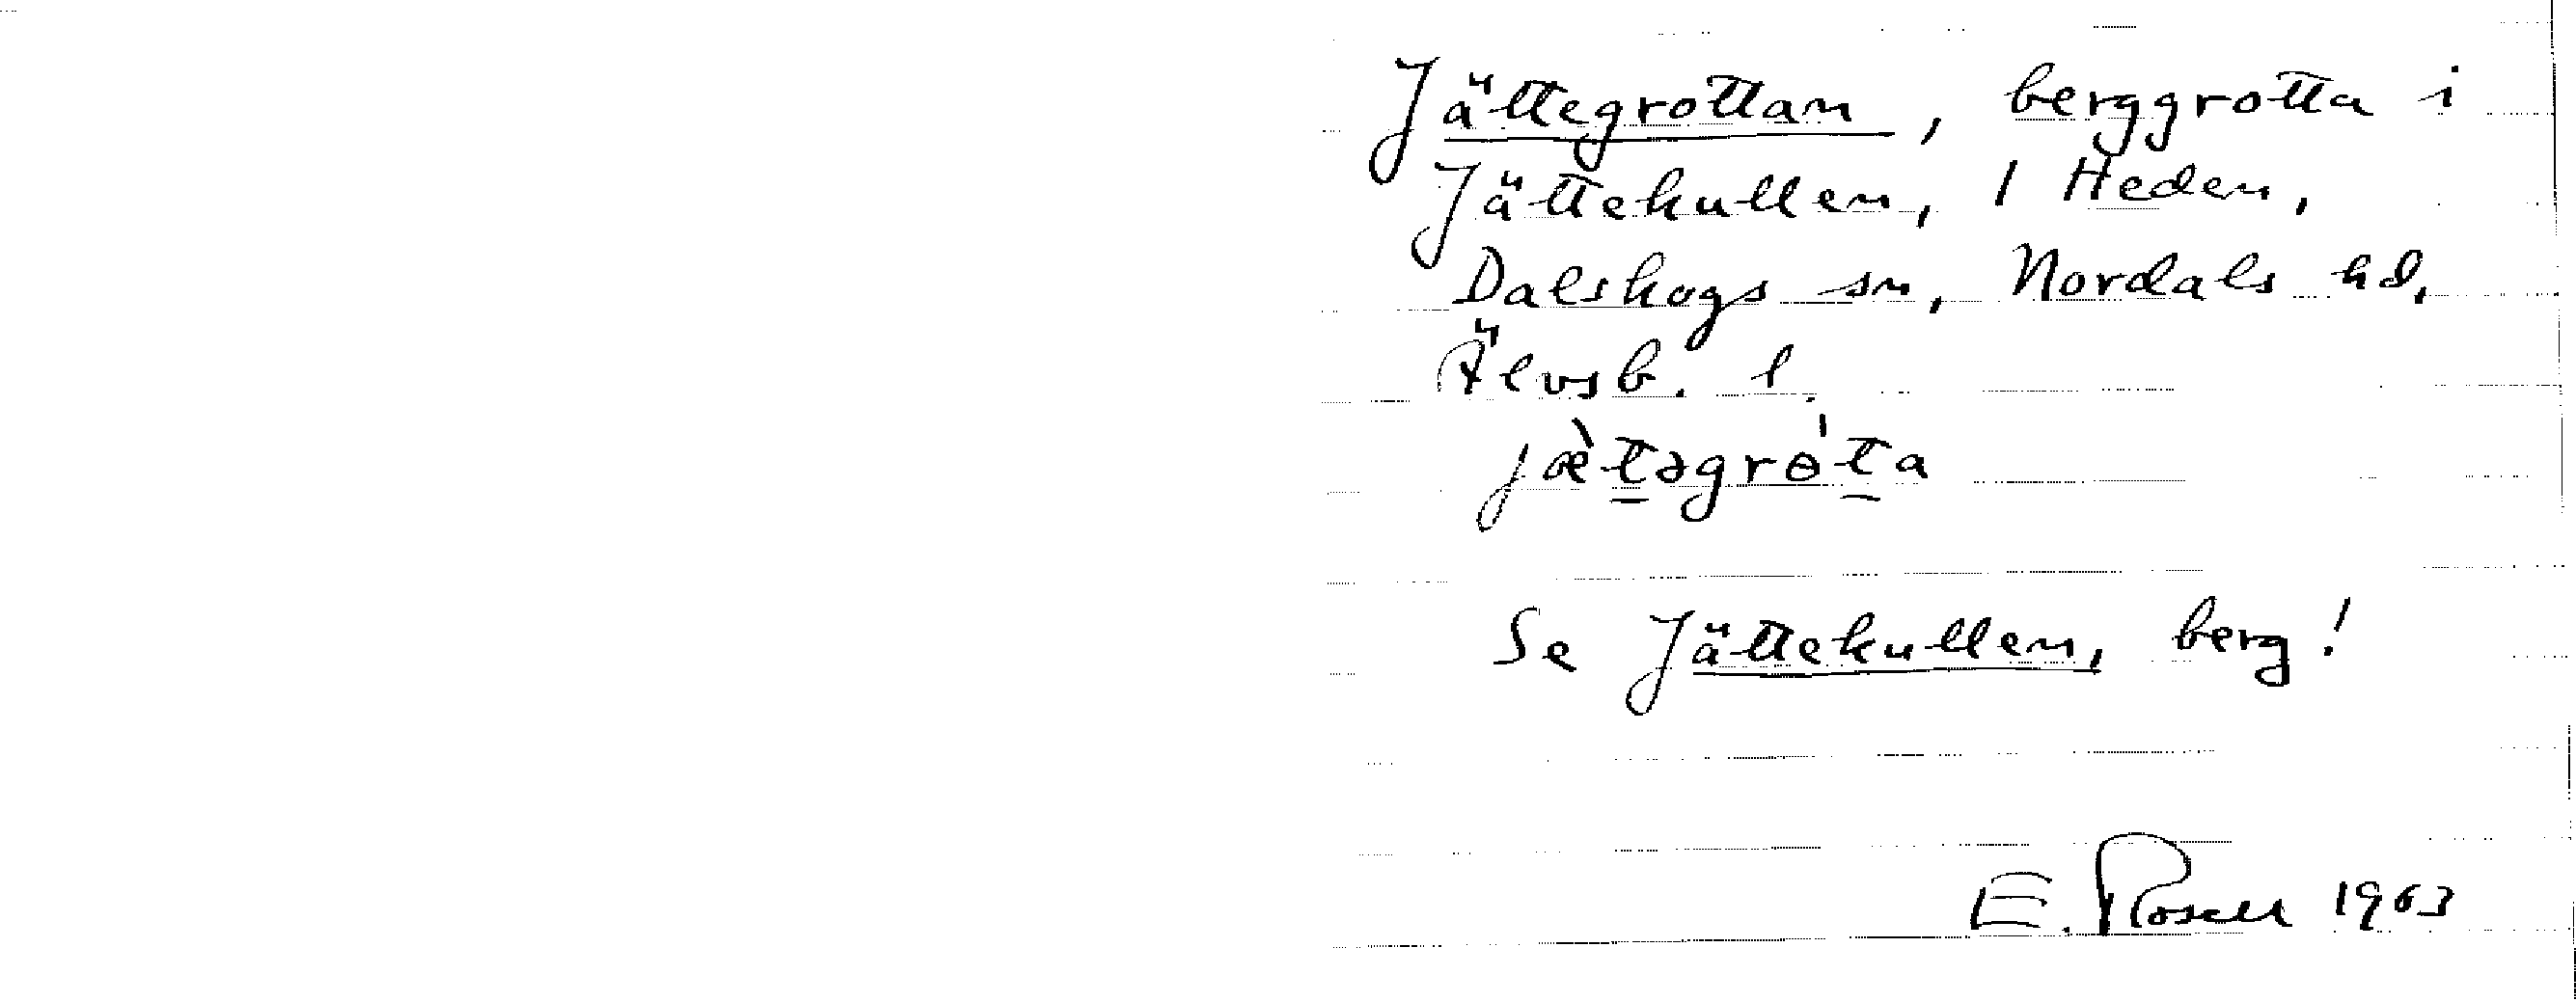 Jättegrottan, berggrotta i
Jättekullen, 1 Heden,
Dalskogs sn, Nordals hd,
Älvsb. l.
jæ̀t̲əgrɵ̀t̲a
Se Jättekullen, berg!
E. Rosell 1963